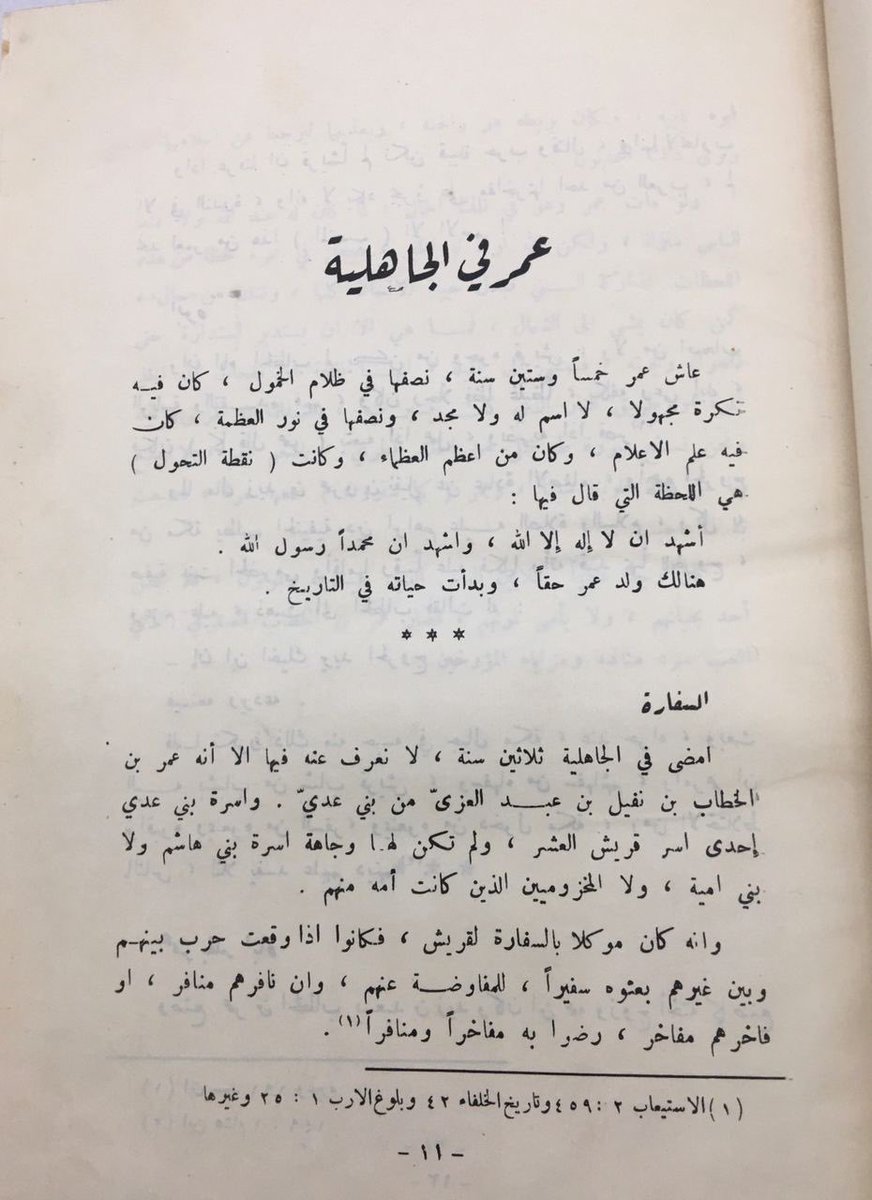 عمر في الجاهلية
عاش عمر خمساً وستين سنة ، نصفها في ظلام الخمول ، كان فيه
نكرة مجهولا ، لا اسم له ولا مجد ، ونصفها في نور العظمة ، كان
فيه علم الاعلام ، وكان من اعظم العظماء ، وكانت ( نقطة التحول )
هي اللحظة التي قال فيها :
أشهد ان لا إله إلا الله ، واشهد ان محمداً رسول الله .
هنالك ولد عمر حقاً ، وبدأت حياته في التاريخ .
* * *
السفارة
امضى في الجاهلية ثلاثين سنة ، لا نعرف عنه فيها الا أنه عمر بن
الخطاب بن نفيل بن عبد العزىّ من بني عديّ . واسرة بني عدي
إحدى اسر قريش العشر ، ولم تكن لها وجاهة اسرة بني هاشم ولا
بني امية ، ولا المخزوميين الذين كانت أمه منهم .
وانه كان موكلا بالسفارة لقريش ، فكانوا اذا وقعت حرب بينهم
وبين غيرهم بعثوه سفيراً ، للمفاوضة عنهم ، وان نافرهم منافر ، او
فاخرهم مفاخر ، رضوا به مفاخراً ومنافراً(١) .
(١) الاستيعاب ٢ : ٤٥٩ وتاريخ الخلفاء ٤٢ وبلوغ الارب ١ : ٢٥ وغيرها
- ١١ -